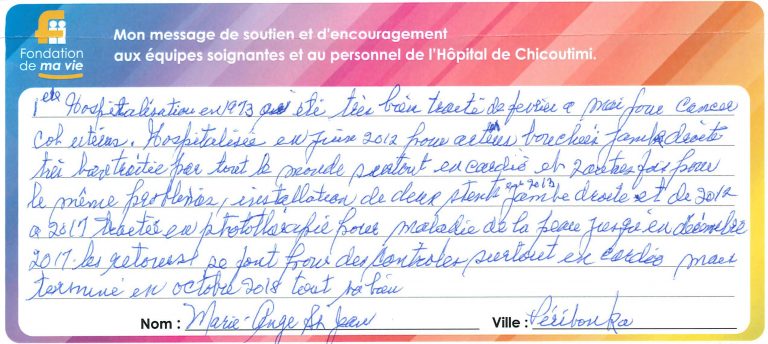 Fondation
de ma vie
Mon message de soutien et d'encouragement
aux équipes soignantes et au personnel de l'Hôpital de Chicoutimi.
1ere Hospitalisation en 1973 été très bien traité de fevrier a mai pour cancer
col utérus. Hospitalisée en juin 2012 pour bouchées jambe droite
très traitée par tout le monde surtout en cardio et 2 autres fois pour
le même problèmes, installation de deux stents 2013 jambe droite et de 2012
a 2017 traitée en photothérapie pour maladie de la peau jusqu'en décembre
2017. les retours se font pour des controles surtout en cardio mais
terminé en octobre 2018 tout va bien
Nom : Marie-Ange St Jean
Ville : Péribonka